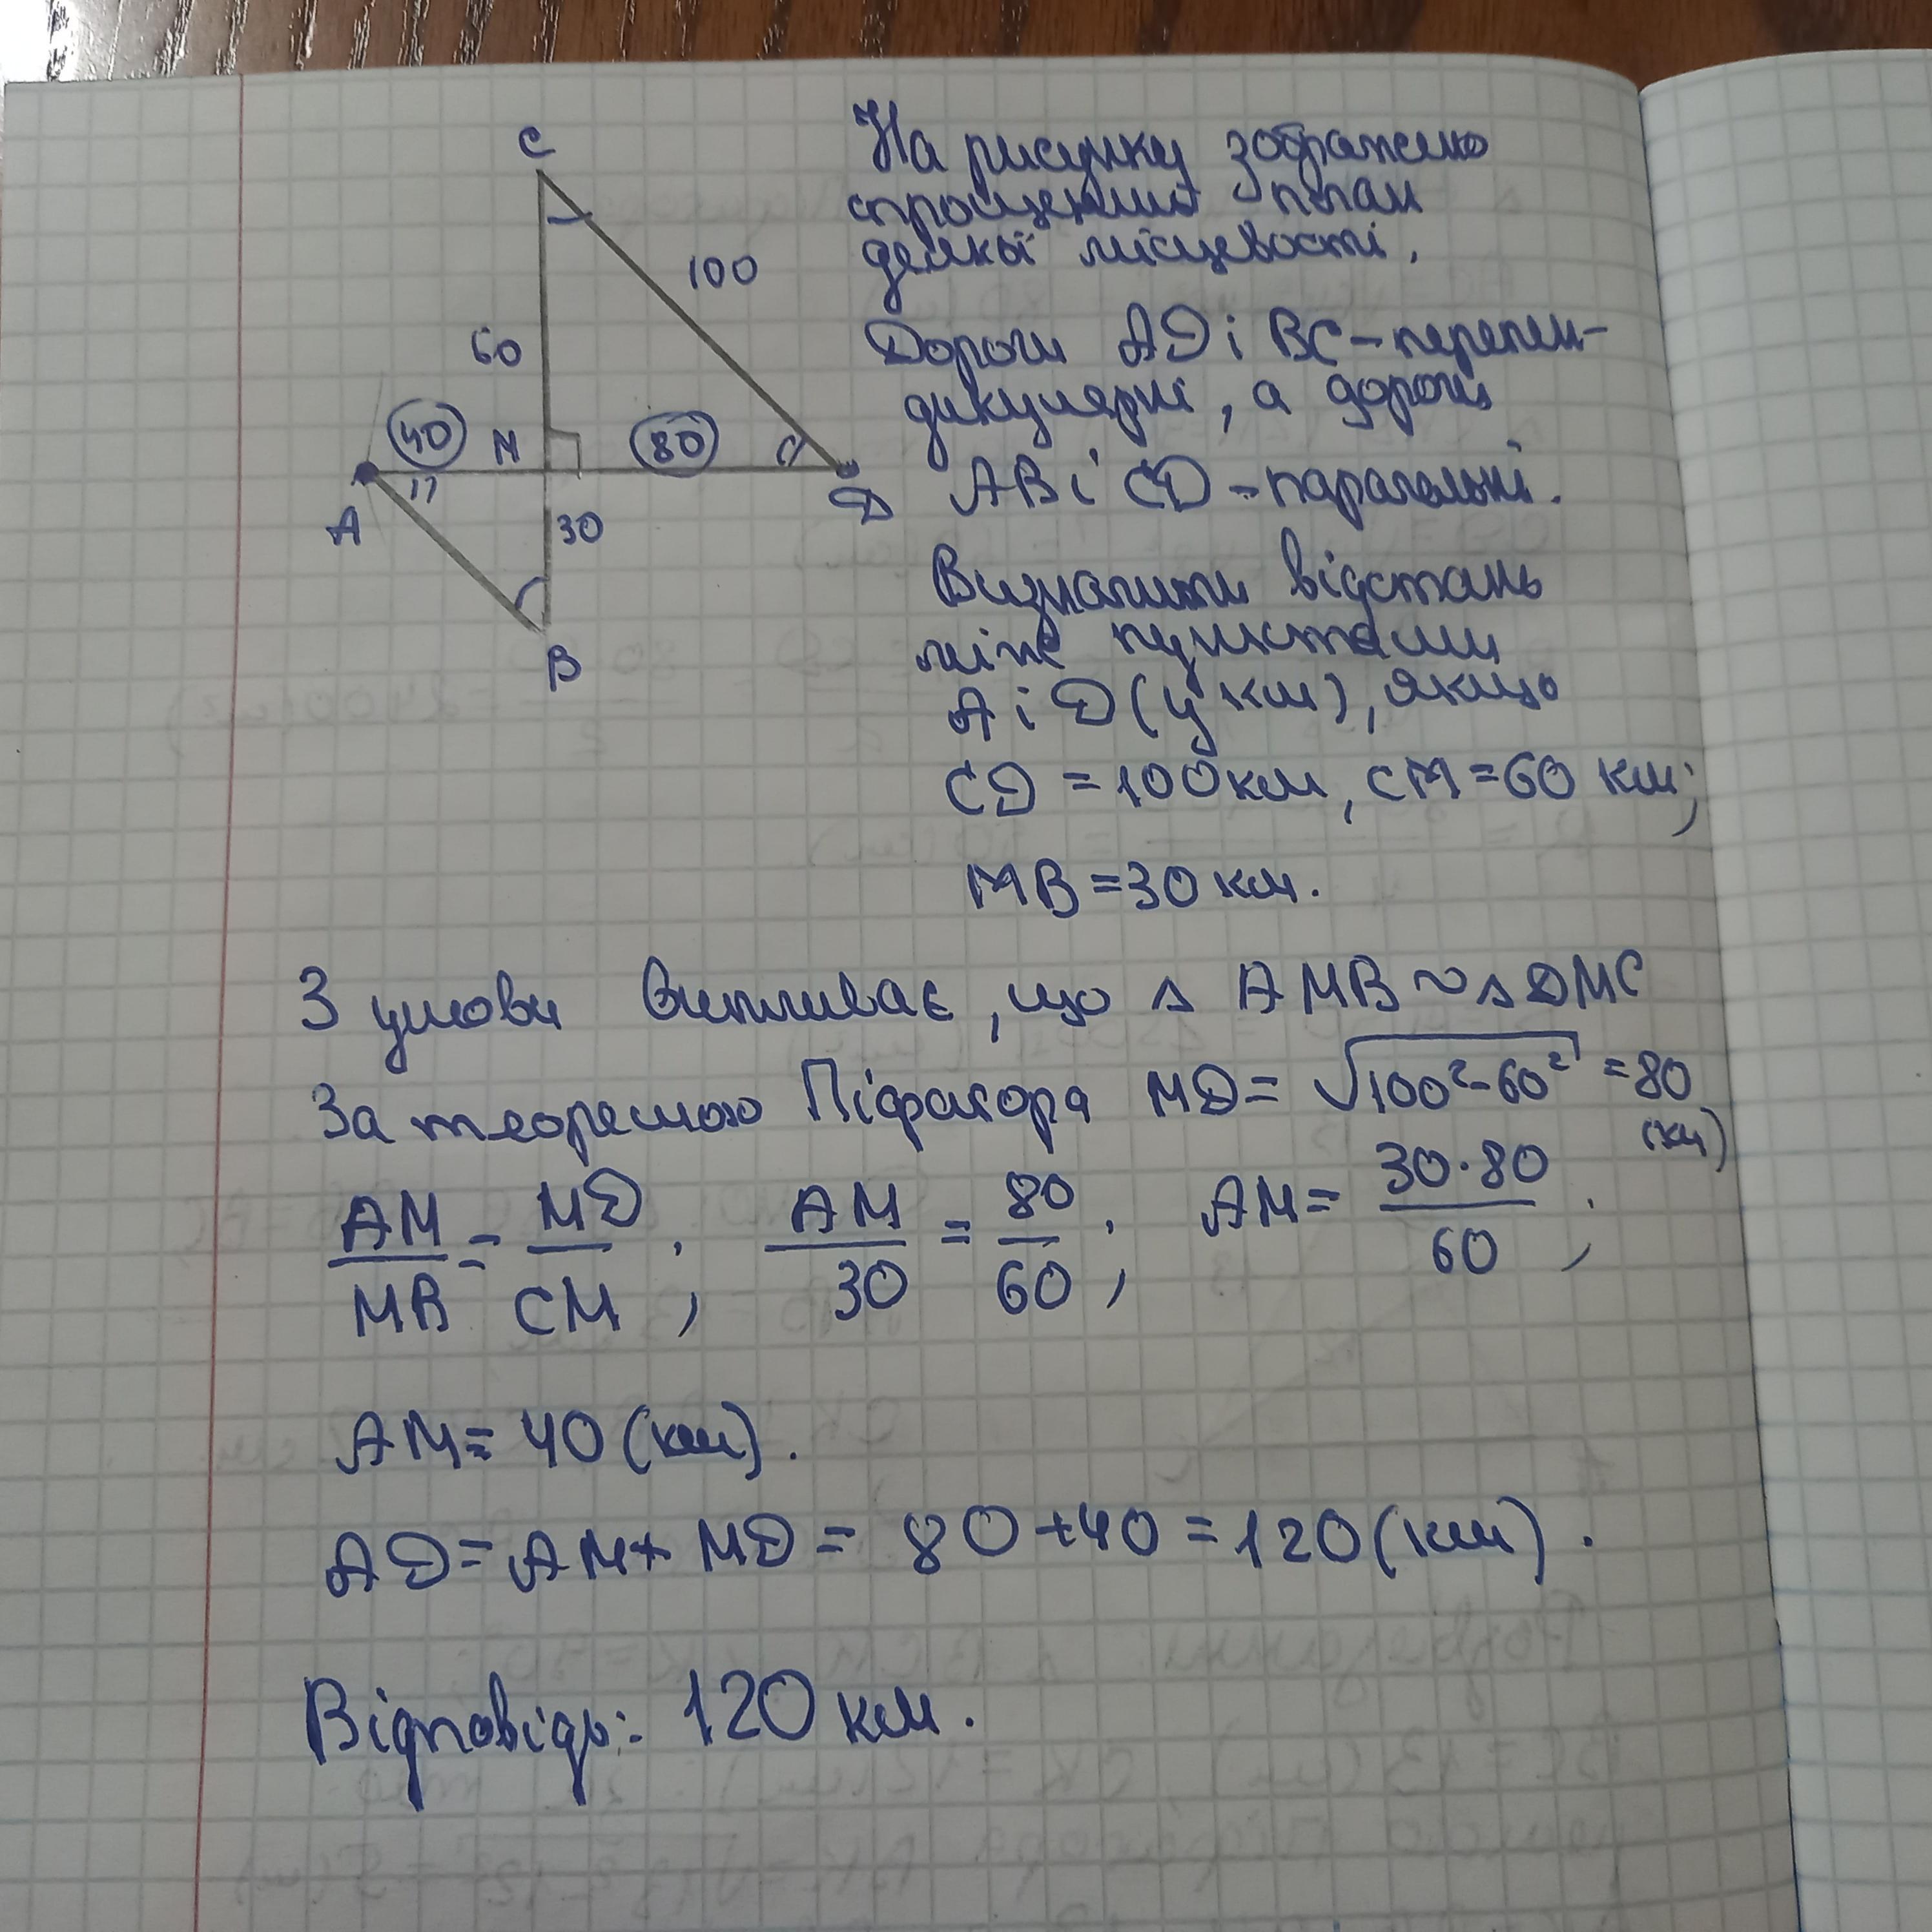 C
100
60
40
M
80
A
D
30
B
На рисунку зображено
спрощений план
деякої місцевості.
Дороги AD і BC – перпен-
дикулярні, а дороги
AB і CD – паралельні.
Визначити відстань
між пунктами
A і D (у км), якщо
CD = 100 км, CM = 60 км;
MB = 30 км.
З умови випливає, що △ AMB ~ △ DMC
За теоремою Піфагора MD = √(100² - 60²) = 80
(км)
AM/MB = MD/CM ; AM/30 = 80/60 ; AM = 30·80/60 ;
AM = 40 (км).
AD = AM + MD = 80 + 40 = 120 (км).
Відповідь: 120 км.